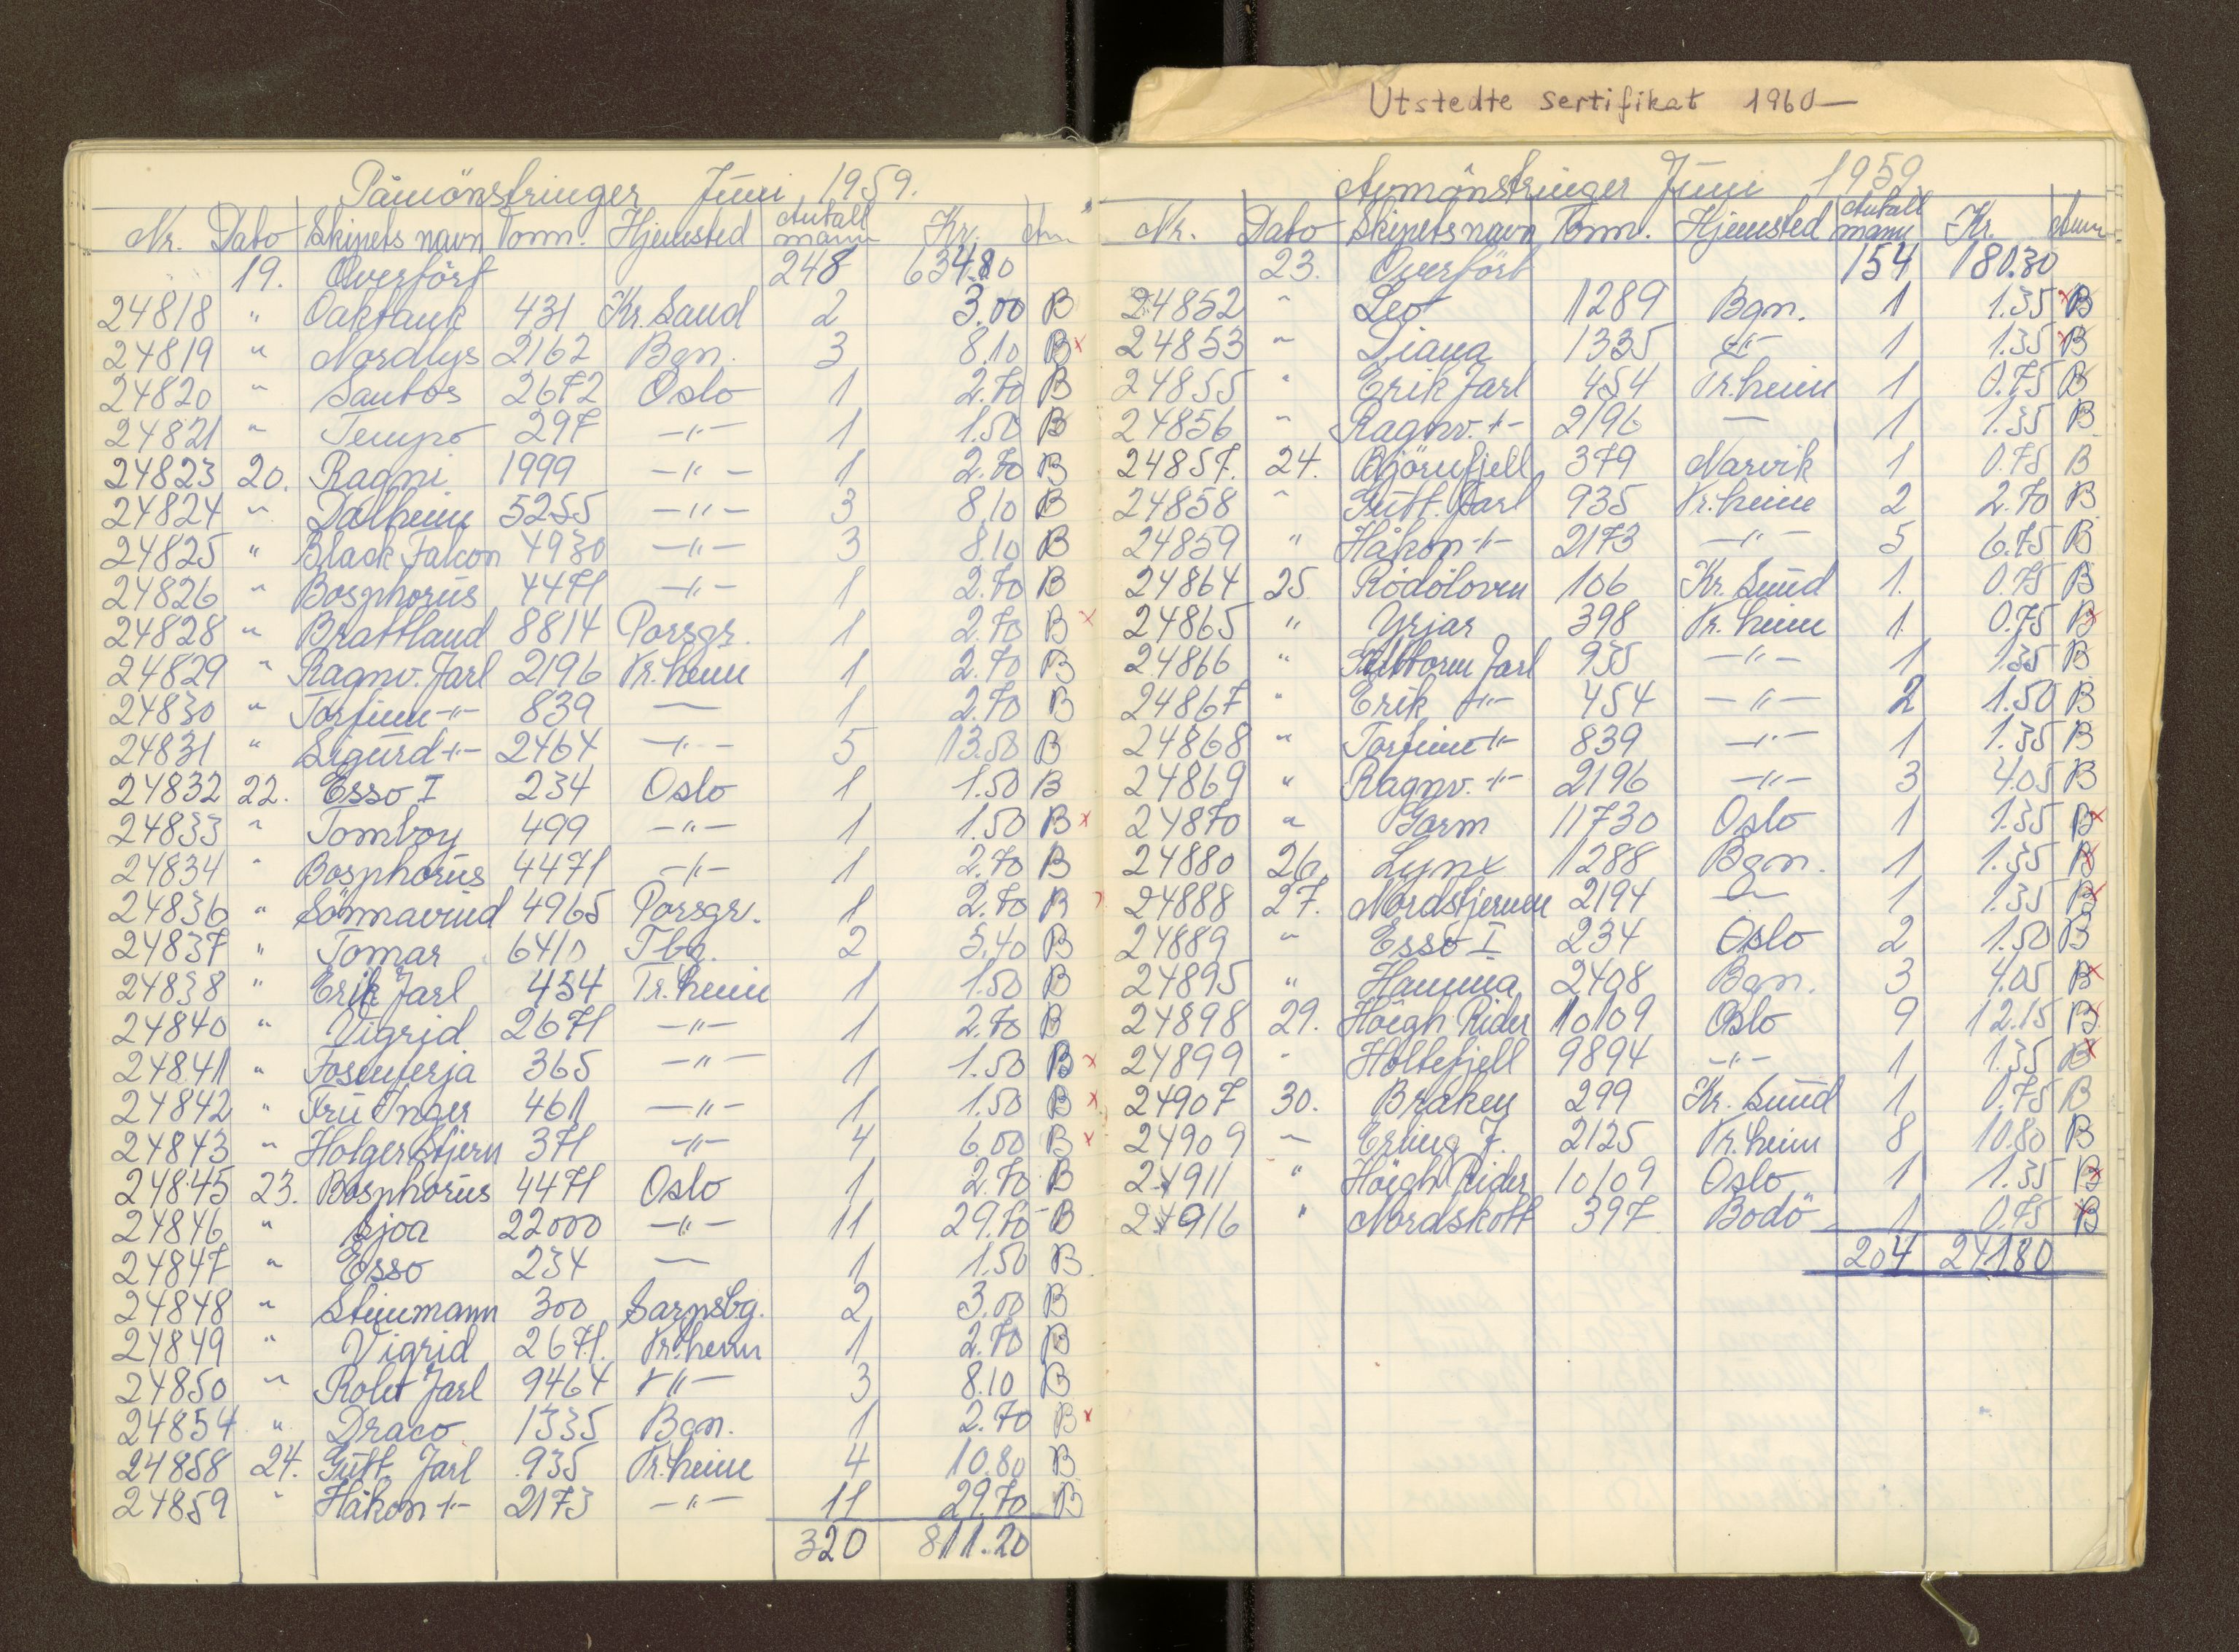 Utstedte sertifikat 1960—
Påmönstringer Juni 1959.
Nr. Dato Skipets navn Tonn. Hjemsted Antall mann Kr. Anm
19. Overfört 248 634.80
24818 " Oaktank 431 Kr. Sand 2 3.00 B
24819 " Nordlys 2162 Bgn. 3 8.10 B x
24820 " Santos 2672 Oslo 1 2.70 B
24821 " Tempo 297 —"— 1 1.50 B
24823 20. Ragni 1999 —"— 1 2.70 B
24824 " Dalheim 5255 —"— 3 8.10 B
24825 " Black Falcon 4930 —"— 3 8.10 B
24826 " Bosphorus 4471 —"— 1 2.70 B
24828 " Brattland 8814 Porsgr. 1 2.70 B x
24829 " Ragnv. Jarl 2196 Tr.heim 1 2.70 B
24830 " Torfinn —"— 839 — 1 2.70 B
24831 " Sigurd —"— 2464 —"— 5 13.50 B
24832 22. Esso I 234 Oslo 1 1.50 B
24833 " Tomboy 499 —"— 1 1.50 B x
24834 " Bosphorus 4471 —"— 1 2.70 B
24836 " Sönnavind 4965 Porsgr. 1 2.70 B
24837 " Tomar 6410 Tbg. 2 5.40 B
24838 " Erik Jarl 454 Tr.heim 1 1.50 B
24840 " Vigrid 2671 —"— 1 2.70 B
24841 " Fosenferja 365 —"— 1 1.50 B x
24842 " Fru Inger 461 —"— 1 1.50 B x
24843 " Holger Stjern 371 —"— 4 6.00 B x
24845 23. Bosphorus 4471 Oslo 1 2.70 B
24846 " Sjoa 22000 —"— 11 29.70 B
24847 " Esso 234 — 1 1.50 B
24848 " Steinmann 300 Sarpsbg. 2 3.00 B
24849 " Vigrid 2671. Tr.heim 1 2.70 B
24850 " Rolf Jarl 9464 —"— 3 8.10 B
24854 " Draco 1335 Bgn. 1 2.70 B x
24858 24. Gutt. Jarl 935 Tr.heim 4 10.80 B
24859 " Håkon —"— 2173 —"— 11 29.70 B
320 811.20
Avmönstringer Juni 1959
Nr. Dato Skipets navn Tonn. Hjemsted Antall mann Kr. Anm
23. Overfört 154 181.30
24852 " Leo 1289 Bgn. 1 1.35 x B
24853 " Diana 1335 —"— 1 1.35 x B
24855 " Erik Jarl 454 Tr.heim 1 0.75 B
24856 " Ragnv. —"— 2196 — 1 1.35 B
24857. 24. Björnfjell 379 Narvik 1 0.75 B
24858 " Gutt. Jarl 935 Tr.heim 2 2.70 B
24859 " Håkon —"— 2173 —"— 5 6.75 B
24864 25 Rödöloven 106 Kr. Sund 1. 0.75 B
24865 " Yrjar 398 Tr.heim 1. 0.75 B x
24866 " Guttorm Jarl 935 —"— 1 1.35 B
24867 " Erik —"— 454 —"— 2 1.50 B
24868 " Torfinn —"— 839 —"— 1 1.35 B
24869 " Ragnv. —"— 2196 —"— 3 4.05 B
24870 " Garm 11730 Oslo 1 1.35 B x
24880 26. Lynx 1288 Bgn. 1 1.35 B x
24888 27. Nordstjernen 2194 — 1 1.35 B x
24889 " Esso I 234 Oslo 2 1.50 B
24895 " Hamma 2408 Bgn. 3 4.05 B x
24898 29. Höegh Rider 10109 Oslo 9 12.15 B x
24899 " Holtefjell 9894 —"— 1 1.35 B x
24907 30. Bråken 299 Kr. Sund 1 0.75 B
24909 " Erling J. 2125 Tr.heim 8 10.80 B
24911 " Höegh Rider 10109 Oslo 1 1.35 B x
24916 " Nordskott 397 Bodö 1 0.75 x B
204 241.80